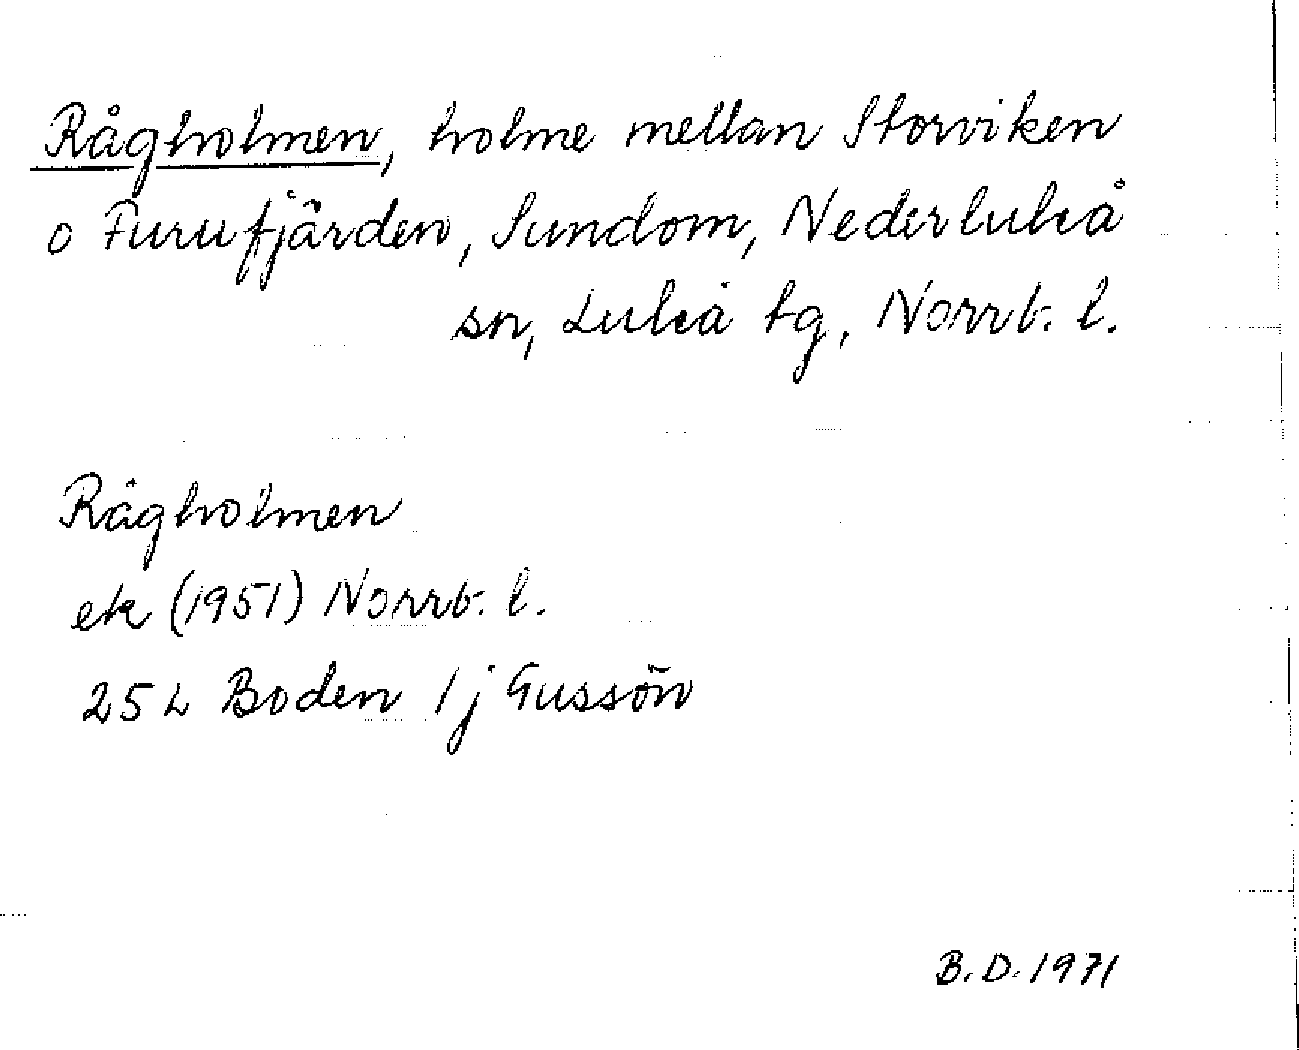 Rågholmen, holme mellan Storviken
o Furufjärden, Sundom, Nederluleå
sn, Luleå tg, Norrb. l.
Rågholmen
ek (1951) Norrb. l.
25 L Boden 1 j Gussön
B. D. 1971